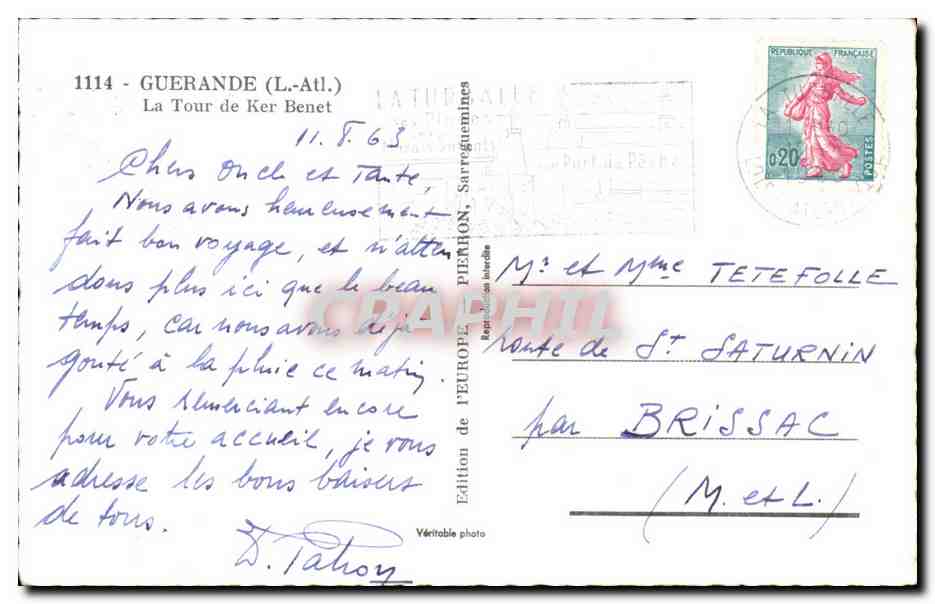 1114 - GUERANDE (L.-Atl.)
La Tour de Ker Benet
11. 63
Chers Oncle et Tante,
Nous avons heureusement
fait bon voyage, et n'atten
dons plus ici que le beau
temps, car nous avons déjà
goûté à la pluie ce matin.
Vous remerciant encore
pour votre accueil, je vous
adresse les bons baisers
de tous.
D.
Véritable photo
Edition de l'EUROPE - PIERRON, Sarreguemines
Reproduction interdite
LA TURBALLE
Port de Pêche
REPUBLIQUE FRANÇAISE
0,20
POSTES
Mr et Mme TETEFOLLE
route de St SATURNIN
par BRISSAC
(M. et L.)
CPAPHIL